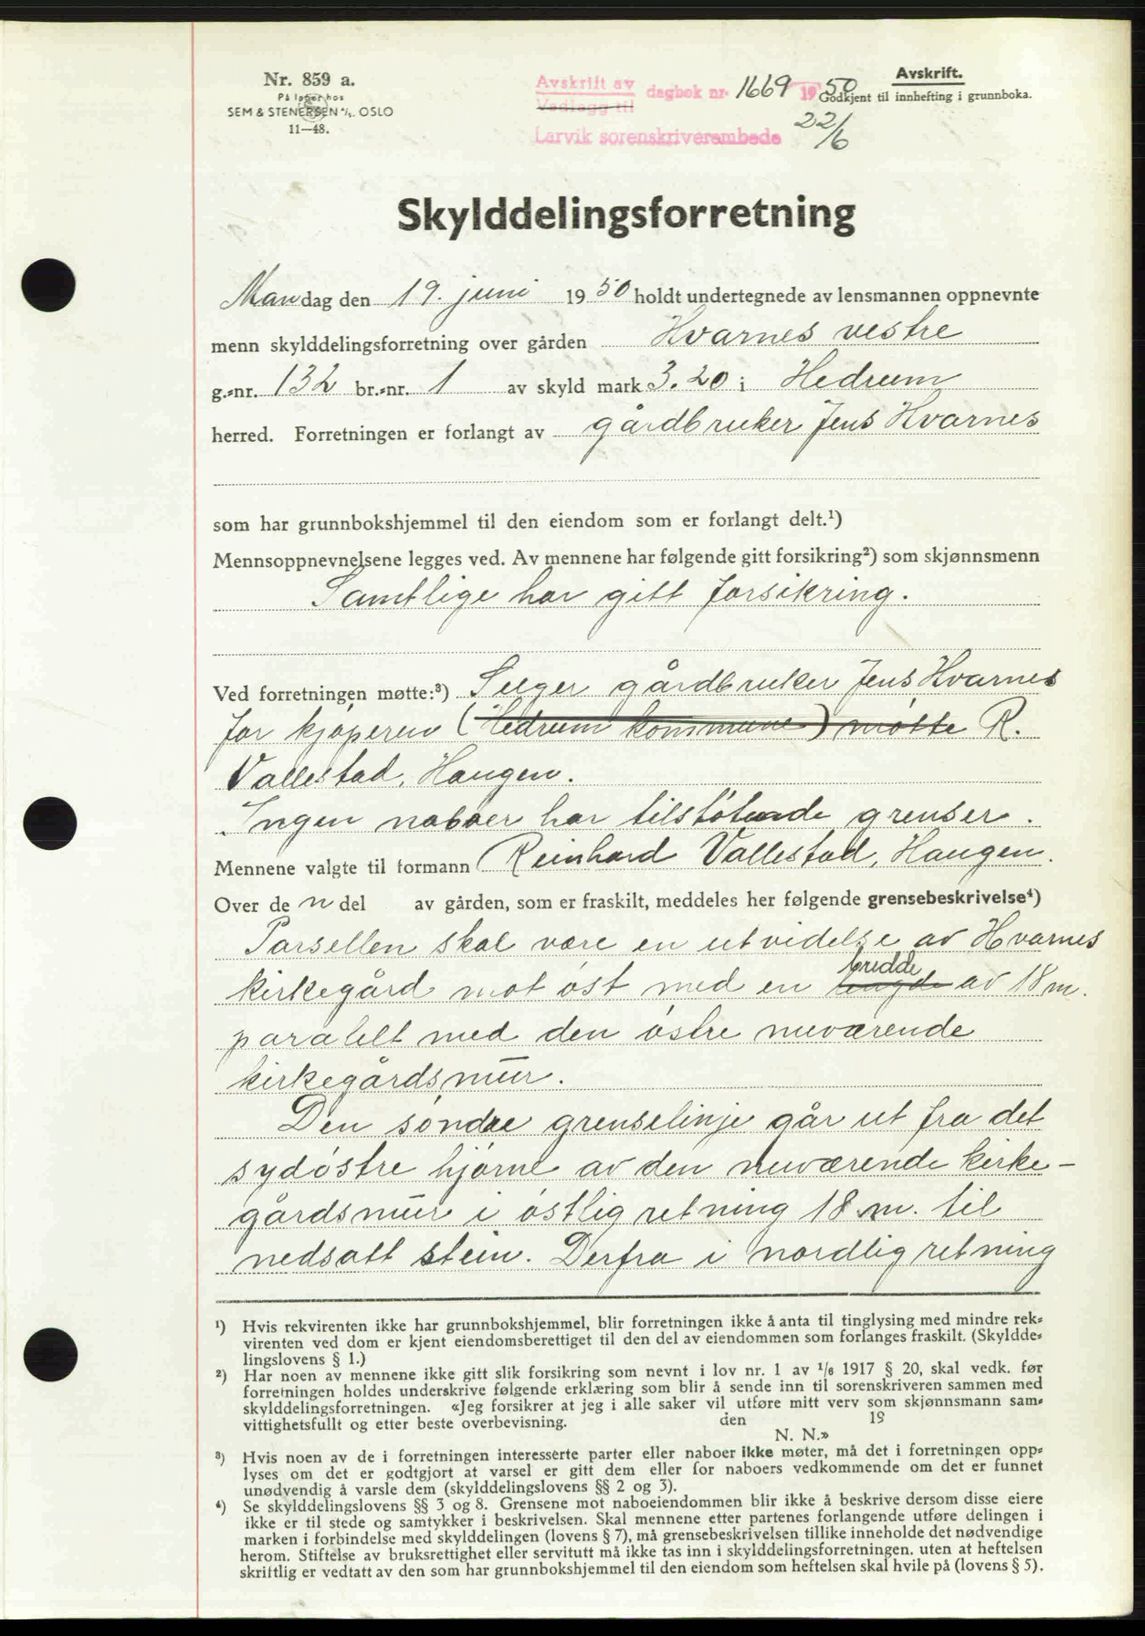 Nr. 859 a.
På lager hos
SEM & STENERSEN A/S. OSLO
11—48.
Avskrift av
Vedlegg til
dagbok nr. 1669 1950
Larvik sorenskriverembede
22/6
Avskrift.
Godkjent til innhefting i grunnboka.
Skylddelingsforretning
Mandag den 19. juni 1950 holdt undertegnede av lensmannen oppnevnte
menn skylddelingsforretning over gården Hvarnes vestre
g.-nr. 132 br.-nr. 1 av skyld mark 3.20 i Hedrum
herred. Forretningen er forlangt av gårdbruker Jens Hvarnes
som har grunnbokshjemmel til den eiendom som er forlangt delt.¹)
Mennsoppnevnelsene legges ved. Av mennene har følgende gitt forsikring²) som skjønnsmenn
Samtlige har gitt forsikring.
Ved forretningen møtte:³) Selger gårdbruker Jens Hvarnes
for kjøperen (Hedrum kommune) møtte R.
Vallestad, Haugen.
Ingen naboer har tilstøtende grenser.
Mennene valgte til formann Reinhard Vallestad, Haugen.
Over den del av gården, som er fraskilt, meddeles her følgende grensebeskrivelse⁴)
Parsellen skal være en utvidelse av Hvarnes
bredde
kirkegård mot øst med en lengde av 18 m.
paralelt med den østre nuværende
kirkegårdsmur.
Den søndre grenselinje går ut fra det
sydøstre hjørne av den nuværende kirke-
gårdsmur i østlig retning 18 m. til
nedsatt stein. Derfra i nordlig retning
¹) Hvis rekvirenten ikke har grunnbokshjemmel, blir forretningen ikke å anta til tinglysing med mindre rek-
virenten ved dom er kjent eiendomsberettiget til den del av eiendommen som forlanges fraskilt. (Skyldde-
lingslovens § 1.)
²) Har noen av mennene ikke gitt slik forsikring som nevnt i lov nr. 1 av 1/6 1917 § 20, skal vedk. før
forretningen holdes underskrive følgende erklæring som blir å sende inn til sorenskriveren sammen med
skylddelingsforretningen. «Jeg forsikrer at jeg i alle saker vil utføre mitt verv som skjønnsmann sam-
vittighetsfullt og etter beste overbevisning. den 19
N. N.»
³) Hvis noen av de i forretningen interesserte parter eller naboer ikke møter, må det i forretningen opp-
lyses om det er godtgjort at varsel er gitt dem eller for naboers vedkommende om det er funnet
unødvendig å varsle dem (skylddelingslovens §§ 2 og 3).
⁴) Se skylddelingslovens §§ 3 og 8. Grensene mot naboeiendommen blir ikke å beskrive dersom disse eiere
ikke er til stede og samtykker i beskrivelsen. Skal mennene etter partenes forlangende utføre delingen i
marken i forbindelse med skylddelingen (lovens § 7), må grensebeskrivelsen tillike inneholde det nødvendige
herom. Stiftelse av bruksrettighet eller servitutt må ikke tas inn i skylddelingsforretningen, uten at heftelsen
skriftlig er vedtatt av den som har grunnbokshjemmel til den eiendom som heftelsen skal hvile på (lovens § 5).